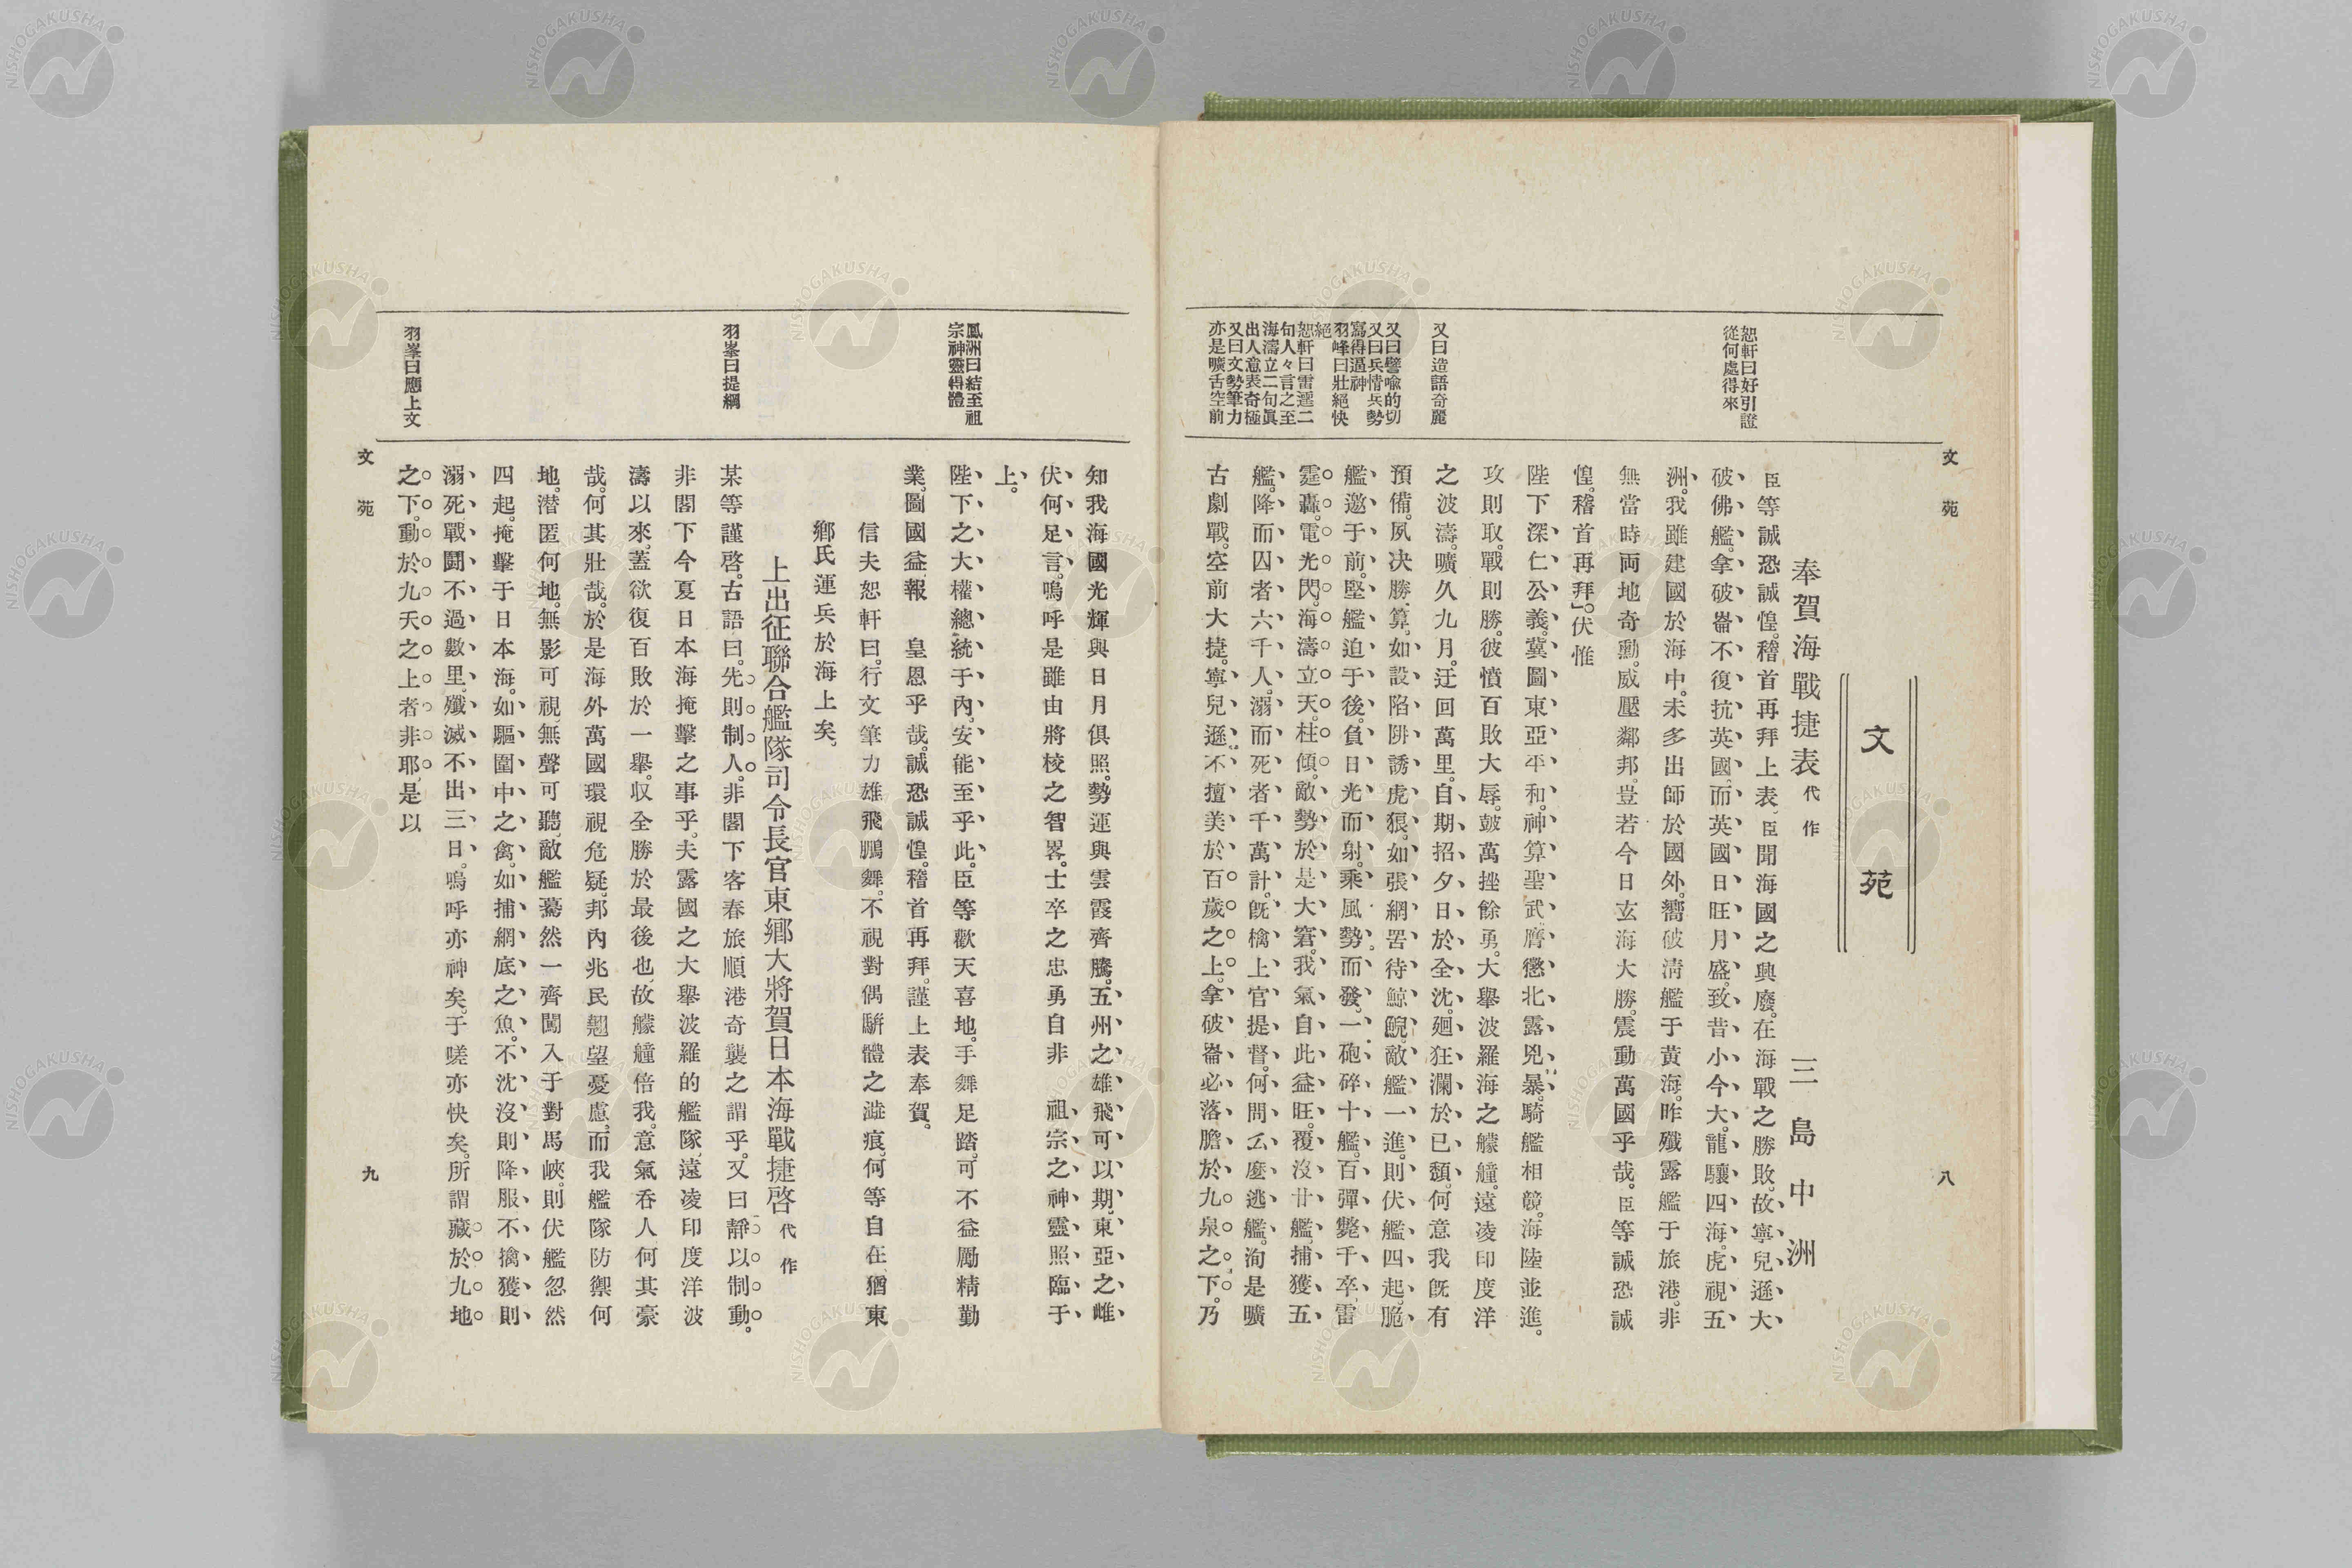 文苑
八
文苑
奉賀海戰捷表 代作 三島中洲
臣等誠恐誠惶。稽首再拜上表。臣聞海國之興廢。在海戰之勝敗。故寧兒遜大
破佛艦。拿破崙不復抗英國。而英國日旺月盛。致昔小今大。龍驤四海。虎視五
洲。我雖建國於海中。未多出師於國外。嚮破淸艦于黃海。昨殲露艦于旅港。非
無當時両地奇勳。威壓鄰邦。豈若今日玄海大勝。震動萬國乎哉。臣等誠恐誠
惶。稽首再拜」。伏惟
陛下深仁公義。冀圖東亞平和。神算聖武。膺懲北露兇暴。騎艦相競。海陸並進。
攻則取。戰則勝。彼憤百敗大辱。皷萬挫餘勇。大擧波羅海之艨艟。遠凌印度洋
之波濤。曠久九月。迂回萬里。自期招夕日於全沈。廻狂瀾於已頹。何意我旣有
預備。夙决勝算。如設陷阱誘虎狼。如張網罟待鯨鯢。敵艦一進。則伏艦四起。脆
艦邀于前。堅艦迫于後。負日光而射。乘風勢而發。一砲碎十艦。百彈斃千卒。雷
霆轟。電光閃。海濤立天。柱傾。敵勢於是大窘。我氣自此益旺。覆沒廿艦。捕獲五
艦。降而囚者六千人。溺而死者千萬計。旣檎上官提督。何問么麼逃艦。洵是曠
古劇戰。空前大捷。寧兒遜不擅美於百歲之上。拿破崙必落膽於九泉之下。乃
恕軒曰好引證
從何處得來
又曰造語奇麗
又曰譬喩的切
又曰兵情兵勢
寫得逼神
羽峰曰壯絕快
絕
恕軒曰雷霆二
句人々言之至
海濤立二句眞
出人意表奇極
又曰文勢筆力
亦是曠古空前
知我海國光輝與日月俱照。勢運與雲霞齊騰。五州之雄飛可以期。東亞之雌
伏何足言。嗚呼是雖由將校之智畧。士卒之忠勇自非 祖宗之神靈照臨于
上。
陛下之大權總統于內。安能至乎此。臣等歡天喜地。手舞足踏。可不益勵精勤
業。圖國益報 皇恩乎哉。誠恐誠惶。稽首再拜。謹上表奉賀。
信夫恕軒曰。行文筆力雄飛鵬舞。不視對偶騈體之澁痕。何等自在、猶東
鄉氏運兵於海上矣。
上出征聯合艦隊司令長官東鄉大將賀日本海戰捷啓 代作
某等謹啓。古語曰。先則制人。非閣下客春旅順港奇襲之謂乎。又曰靜以制動。
非閣下今夏日本海掩擊之事乎。夫露國之大擧波羅的艦隊、遠凌印度洋波
濤以來。蓋欲復百敗於一擧。収全勝於最後也。故艨艟倍我。意氣吞人何其豪
哉。何其壯哉。於是海外萬國環視危疑。邦內兆民翹望憂慮。而我艦隊防禦何
地。潜匿何地。無影可視。無聲可聽。敵艦驀然一齊闖入于對馬峽。則伏艦忽然
四起。掩擊于日本海。如驅圍中之禽。如捕網底之魚。不沈沒則降服。不擒獲則
溺死。戰鬪不過數里。殲滅不出三日。嗚呼亦神矣。于嗟亦快矣。所謂藏於九地
之下。動於九天之上者非耶。是以
鳳洲曰結至祖
宗神靈得體
羽峯曰提綱
羽峯曰應上文
文苑
九